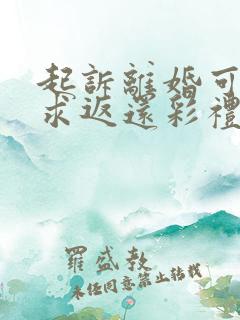 起訴離婚可
求返還彩禮
羅盛教
未经同意禁止转载